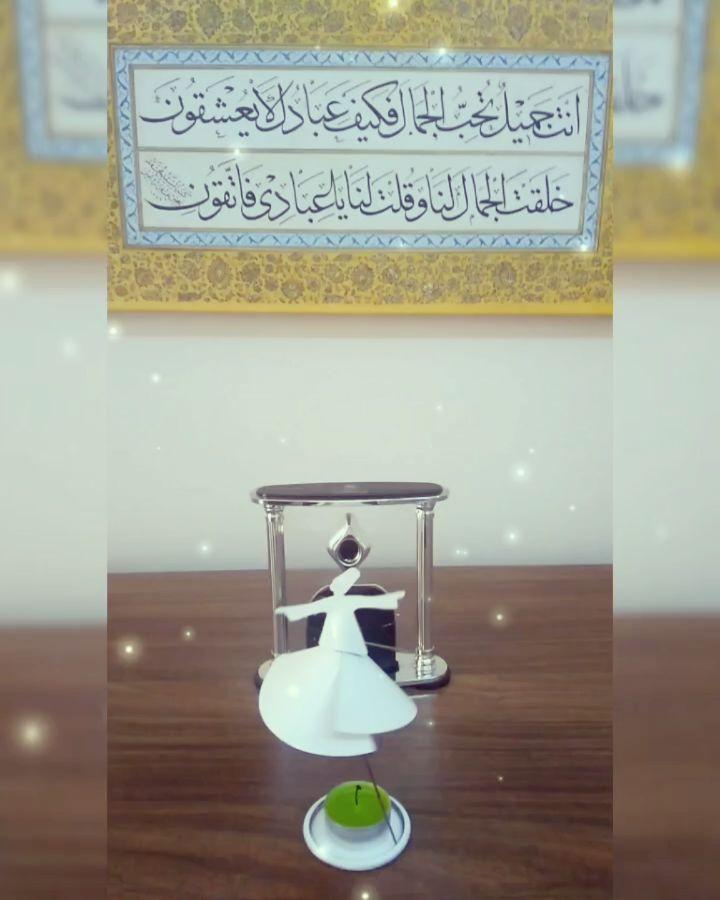 اَنْتَ جَمِيلٌ تُحِبُّ الْجَمَالَ فَكَيْفَ عِبَادُكَ لَا يَعْشَقُونَ
خَلَقْتَ الْجَمَالَ لَنَا وَقُلْتَ لَنَا يَا عِبَادِى فَاتَّقُونِ